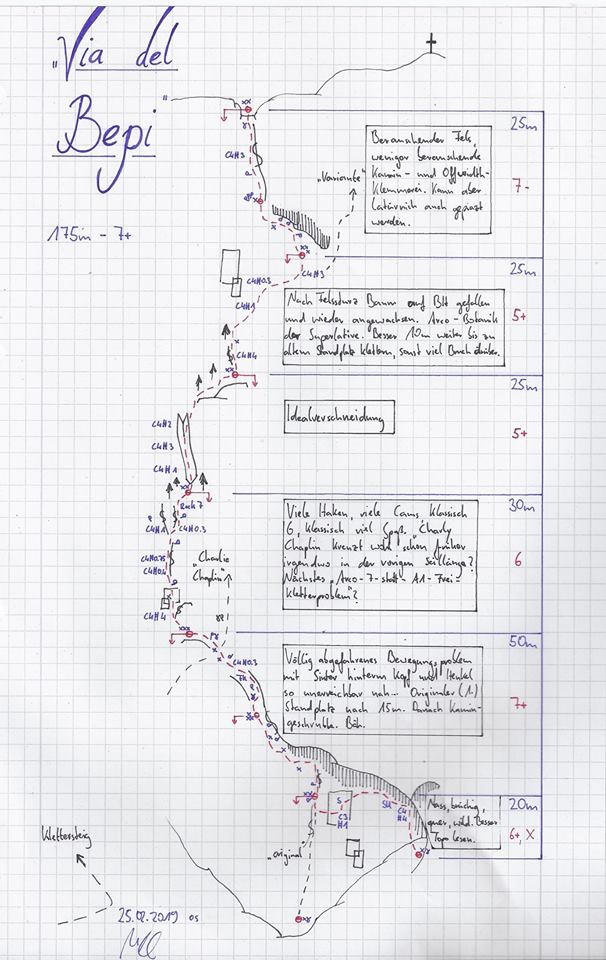 "Via del
Bepi"
175m - 7+
25m
7-
Berauschender Fels,
weniger berauschende
Kamin- und Offwidth-
Klemmerei. Kann aber
latürnich auch gepiazt
werden.
"Variante"
C4H3
C4H3
C4H0.3
C4H1
C4H4
25m
5+
Nach Felssturz Baum auf BH gefallen
und wieder angewachsen. Arco-Botanik
der Superlative. Besser 10m weiter bis zu
altem Standplatz klettern, sonst viel Bruch drüber.
25m
5+
Idealverschneidung
C4H2
C4H3
C4H1
30m
6
Viele Haken, viele Cams. Klassisch
6, klassisch viel Spaß. "Charly
Chaplin" kreuzt wohl schon früher
irgendwo in der vorigen Seillänge?
Nächstes "Arco-7-statt-A1-Frei-
kletterproblem"?
Ruk7
C4H1
C4H0.3
C4H0.75
C4H0.4
C4H4
"Charlie
Chaplin"
50m
7+
Völlig abgefahrenes Bewegungsproblem
mit hinterm Kopf und Henkel
so unerreichbar nah... Originaler (1.)
Standplatz nach 15m. Danach Kamin-
geschrubbe. Bäh.
C4H0.3
20m
6+, X
Nass, brüchig,
quer, wild. Besser
Topo lesen.
S
C3
H1
SU
C4
H4
"original"
Klettersteig
25.02.2019 os